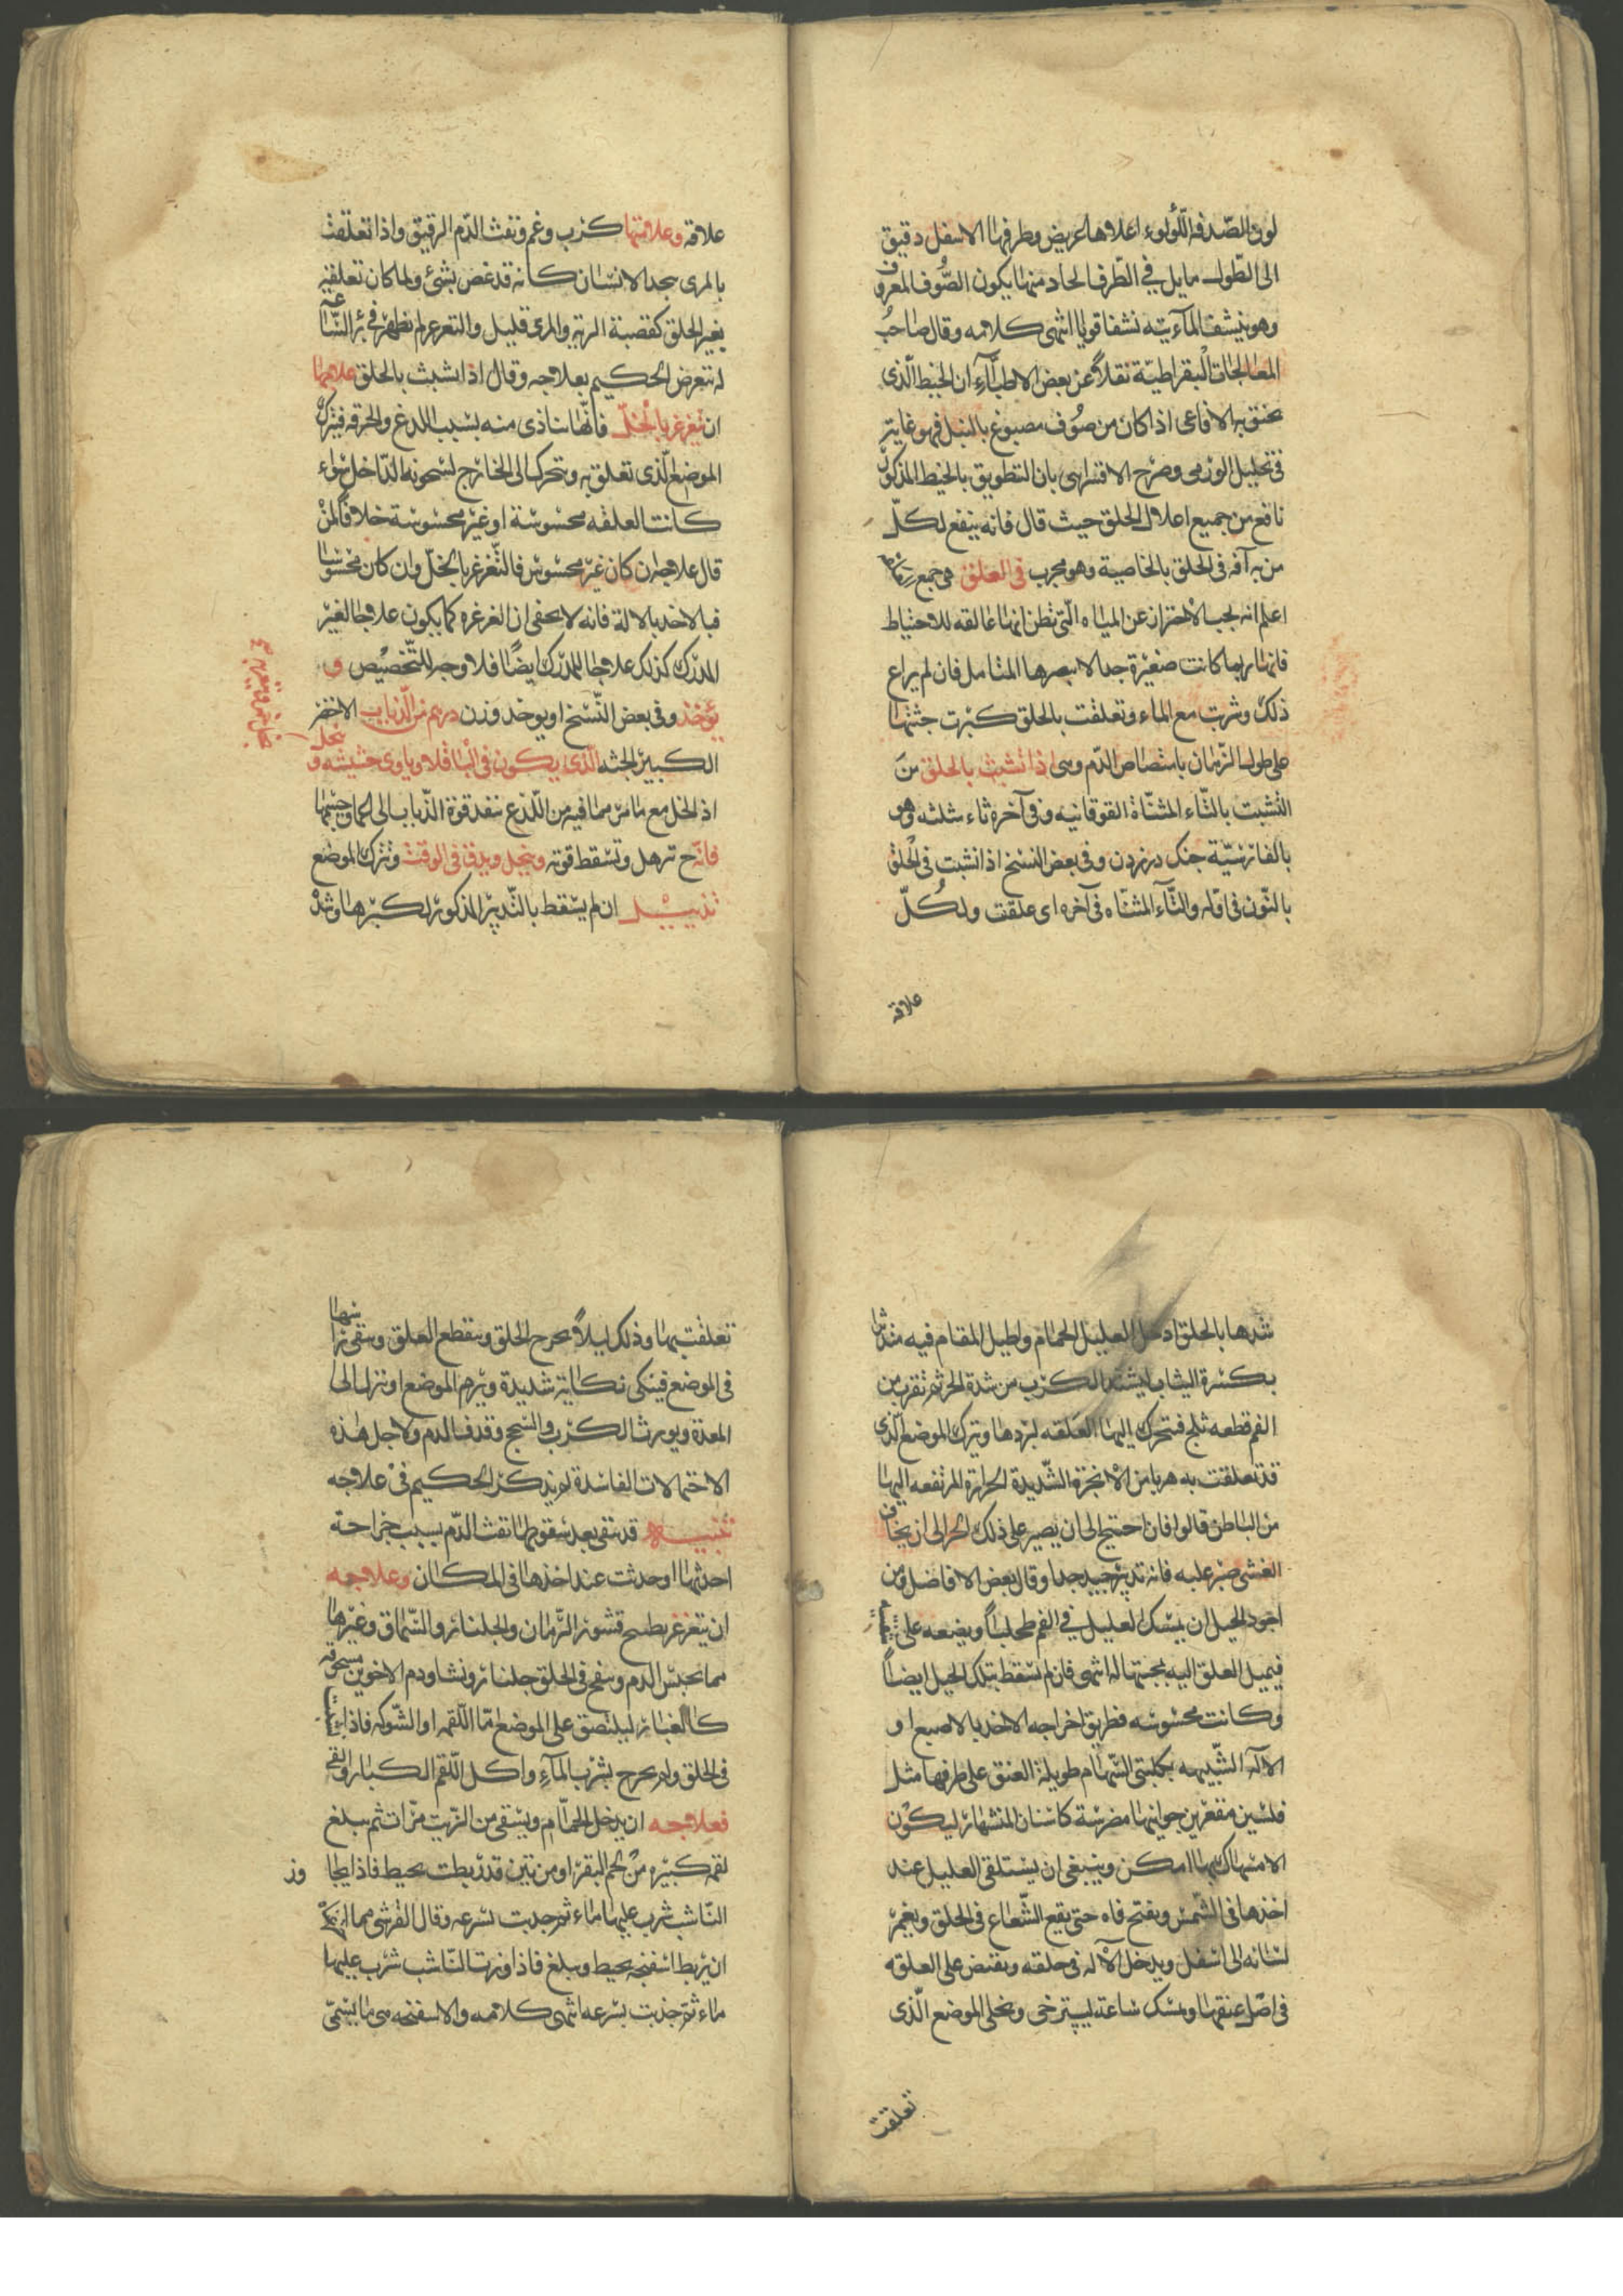 لون الصّدفة اللّؤلوء اعلاها عريض وطرفها الاسفل دقيق
الى الطّول مايل في الطّرف الحاد منها يكون الصُّوف المعروف
وهو ينشف المآء يته نشفا قويا انتهى كلامه وقال صاحب
المعالجات البقراطيّة نقلاً عن بعض الاطبّآءِ ان الخيط الّذى
يخنق به الافاعى اذا كان من صُوف مصبوغ بالنيل فهو غاية
فى تحليل الورم وصرح الاقسرايى بان التطويق بالخيط المذكور
نافع من جميع اعلال الحلق حيث قال فانه ينفع لكلّ
من به آفة فى الحلق بالخاصية وهو مجرب فى العلق هى جمع
اعلم انه يجب الاحتراز عن المياه الّتى تظن انها عالقه للاحتياط
فانها ربما كانت صغيرة جدا لا يبصرها المتامل فان لم يراع
ذلك وشربت مع الماء وتعلقت بالحلق كبرت جثتها
على طول الزّمان بامتصاص الدّم وهى اذا تشبث بالحلق من
التشبت بالتّاء المثنّاة الفوقانيه وفى آخره ثاء مثلثه وهو
بالفارسيّة جنك درزدن وفى بعض النسخ اذا نشبت فى الحلق
بالنّون فى اوّله والتّآء المثنّاه فى آخره اى علقت ولكُلّ
علاقه
علاقه وعلامتها كرب وغم ونفث الدّم الرقيق واذا تعلقت
بالمرى يجد الانسان كانه قد غص بشئ ولما كان تعلقه
بغير الحلق كقصبة الريه والمرى قليل والتغرغر لم يظهر فى
له يتعرض الحكيم بعلاجه وقال اذا تشبث بالحلق علاجها
ان تغرغر بالخلّ فانّها تتاذى منه بسبب اللدغ والحرقه فيترك
الموضع الّذى تعلق به وتحرك الى الخارج لسخونة الدّاخل سواء
كانت العلقه محسوسة او غير محسوسة خلافا لمن
قال علاجه ان كان غير محسوس فالتّغرغر بالخلّ وان كان محسوسا
فبالاخذ بالالة فانه لا يخفى ان الغرغره كما يكون علاجا لغير
المدرك كذلك علاجا للمدرك ايضًا فلا وجه للتّخصيص و
يؤخذ وفى بعض النّسخ او يوخد وزن درهم من الذّباب الاخضر
الكبير الجثه الّذى يكون فى الباقلا وياوى حشيشه و
اذ الخل مع ما مر مما فيه من اللّذع ينفد قوة الذّباب الى
فانّه ح ترهل وتسقط قوته وينحل ويدق فى الوقت وتترك الموضع
تذييل ان لم يسقط بالتّدبير المذكور لكبرها وشدّة
شدها بالحلق ادخل العليل الحمام ويطيل المقام فيه
بكثرة الثياب ليشتد الكرب من شدة الحر ثم تقرب من
الفم قطعه ثلج فتحرك اليها العلقه لبردها وترك الموضع الّذى
قد تعلقت به هربا من الابخرة الشّديدة الحرارة المرتفعه اليها
من الباطن قالوا فان احتيج الى ان يصبر على ذلك الحر الى ان يخاف
الغشى صبر عليه فانه تدبير جيد جدا وقال بعض الافاضل ومن
اجود الحيل ان يمسك العليل في الفم طحلبا ويضعه على
فيميل العلق اليه لمحبتها له انتهى فان لم تسقط بتلك الحيل ايضاً
وكانت محسوسه فطريق اخراجه الاخذ بالاصبع او
الآله الشّبيهه بكلبتى السّهام طويلة العنق على طرفها مثل
فلسين مقعرين جوانبها مضرسة كاسنان المنشار ليكون
الامساك بها امكن وينبغى ان يستلقى العليل عند
اخذها فى الشمس ويفتح فاه حتى يقع الشّعاع فى الحلق ويغمز
لسانه الى اسفل ويدخل الآله فى حلقه وتقبض على العلقه
فى اصل عنقها ويمسك ساعة ليسترخى وتخلى الموضع الّذى
تعلقت
تعلقت بها وذلك ليلا يجرح الحلق وينقطع العلق ويبقى
فى الموضع فينكى نكاية شديدة ويرم الموضع او تنزل الى
المعدة ويورث الكرب والسّحج وقذف الدم ولاجل هذه
الاحتمالات الفاسدة لم يذكر الحكيم فى علاجه
تنبيه قد تبقى بعد سقوطها نفث الدّم بسبب جراحة
احدثها او حدثت عند اخذها فى المكان وعلاجه
ان يتغرغر بطبيخ قشور الرّمان والجلنار والسّماق وغيرها
مما يحبس الدم وينفخ فى الحلق جلنار ونشا ودم الاخوين مسحوقه
كالغبار ليلتصق على الموضع امّا اللّقمه او الشّوكه فاذا
فى الحلق ولم يخرج بشرب المآءِ واكل اللّقم الكبار والقئ
فعلاجه ان يدخل الحمّام ويسقى من الزيت مرّات ثم يبلع
لقمه كبيره من لحم البقر او من تين قد ربطت بخيط فاذا
النّاشب شرب عليها ماء ثم جذبت بسرعه وقال القرشى مما
ان يربط اسفنجه بخيط ويبلغ فاذا وزت النّاشب شرب عليها
ماء ثمّ جذبت بسرعه انتهى كلامه والاسفنجه هى ما يسمّى